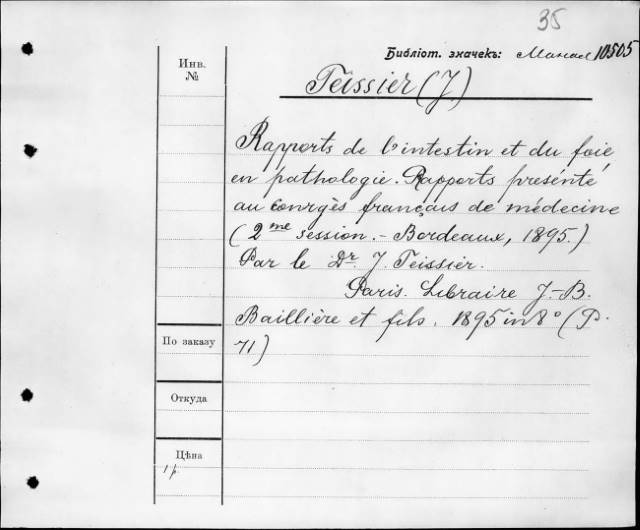 35
Библіот. значекъ: Манас 10505
Инв.
№
Teissier (J)
Rapports de l'intestin et du foie
en pathologie. Rapports présénté
au congrès français de médecine
(2me session. - Bordeaux, 1895.)
Par le Dr. J. Teissier.
Paris. Libraire J-B.
Baillière et fils. 1895 in 8° (P.
71)
По заказу
Откуда
Цѣна
1 р